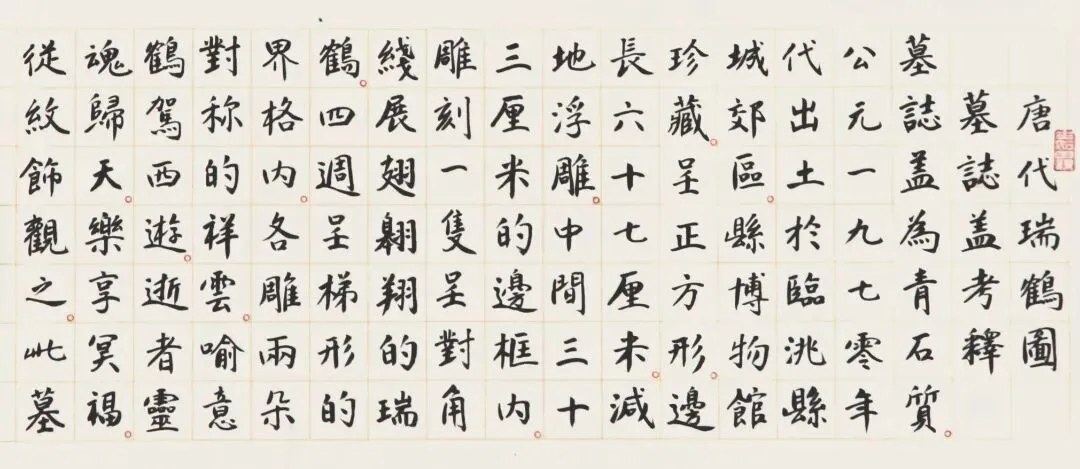 唐代瑞鶴圖
墓誌盖考釋
墓誌盖為青石質。
公元一九七零年
代出土於臨洮縣
城郊區。縣博物館
珍藏。呈正方形。邊
長六十七厘米。減
地浮雕。中間三十
三厘米的邊框内。
雕刻一隻呈對角
綫展翅翱翔的瑞
鶴。四週呈梯形的
界格内。各雕兩朵
對称的祥雲。喻意
鶴駕西遊。逝者靈
魂歸天。樂享冥福。
從紋飾觀之。此墓